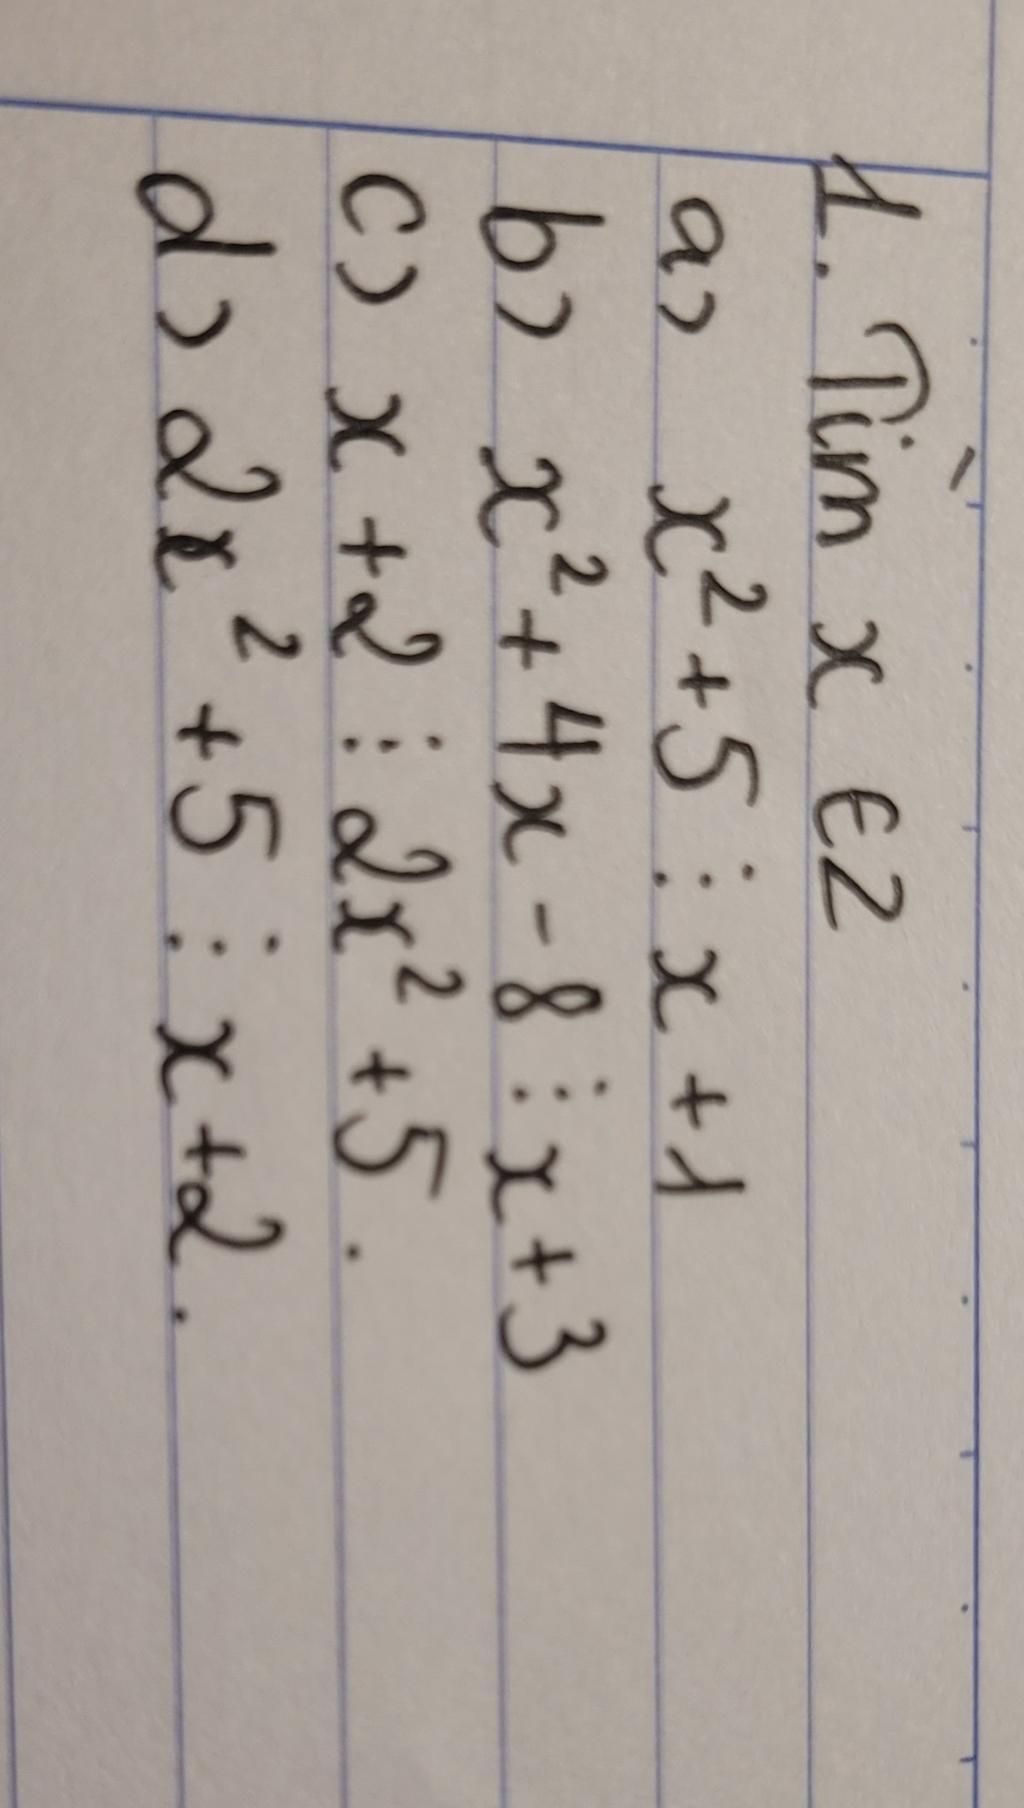 1. Tìm x ∈ Z
a) x² + 5 ⋮ x + 1
b) x² + 4x - 8 ⋮ x + 3
c) x + 2 ⋮ 2x² + 5.
d) 2x² + 5 ⋮ x + 2.